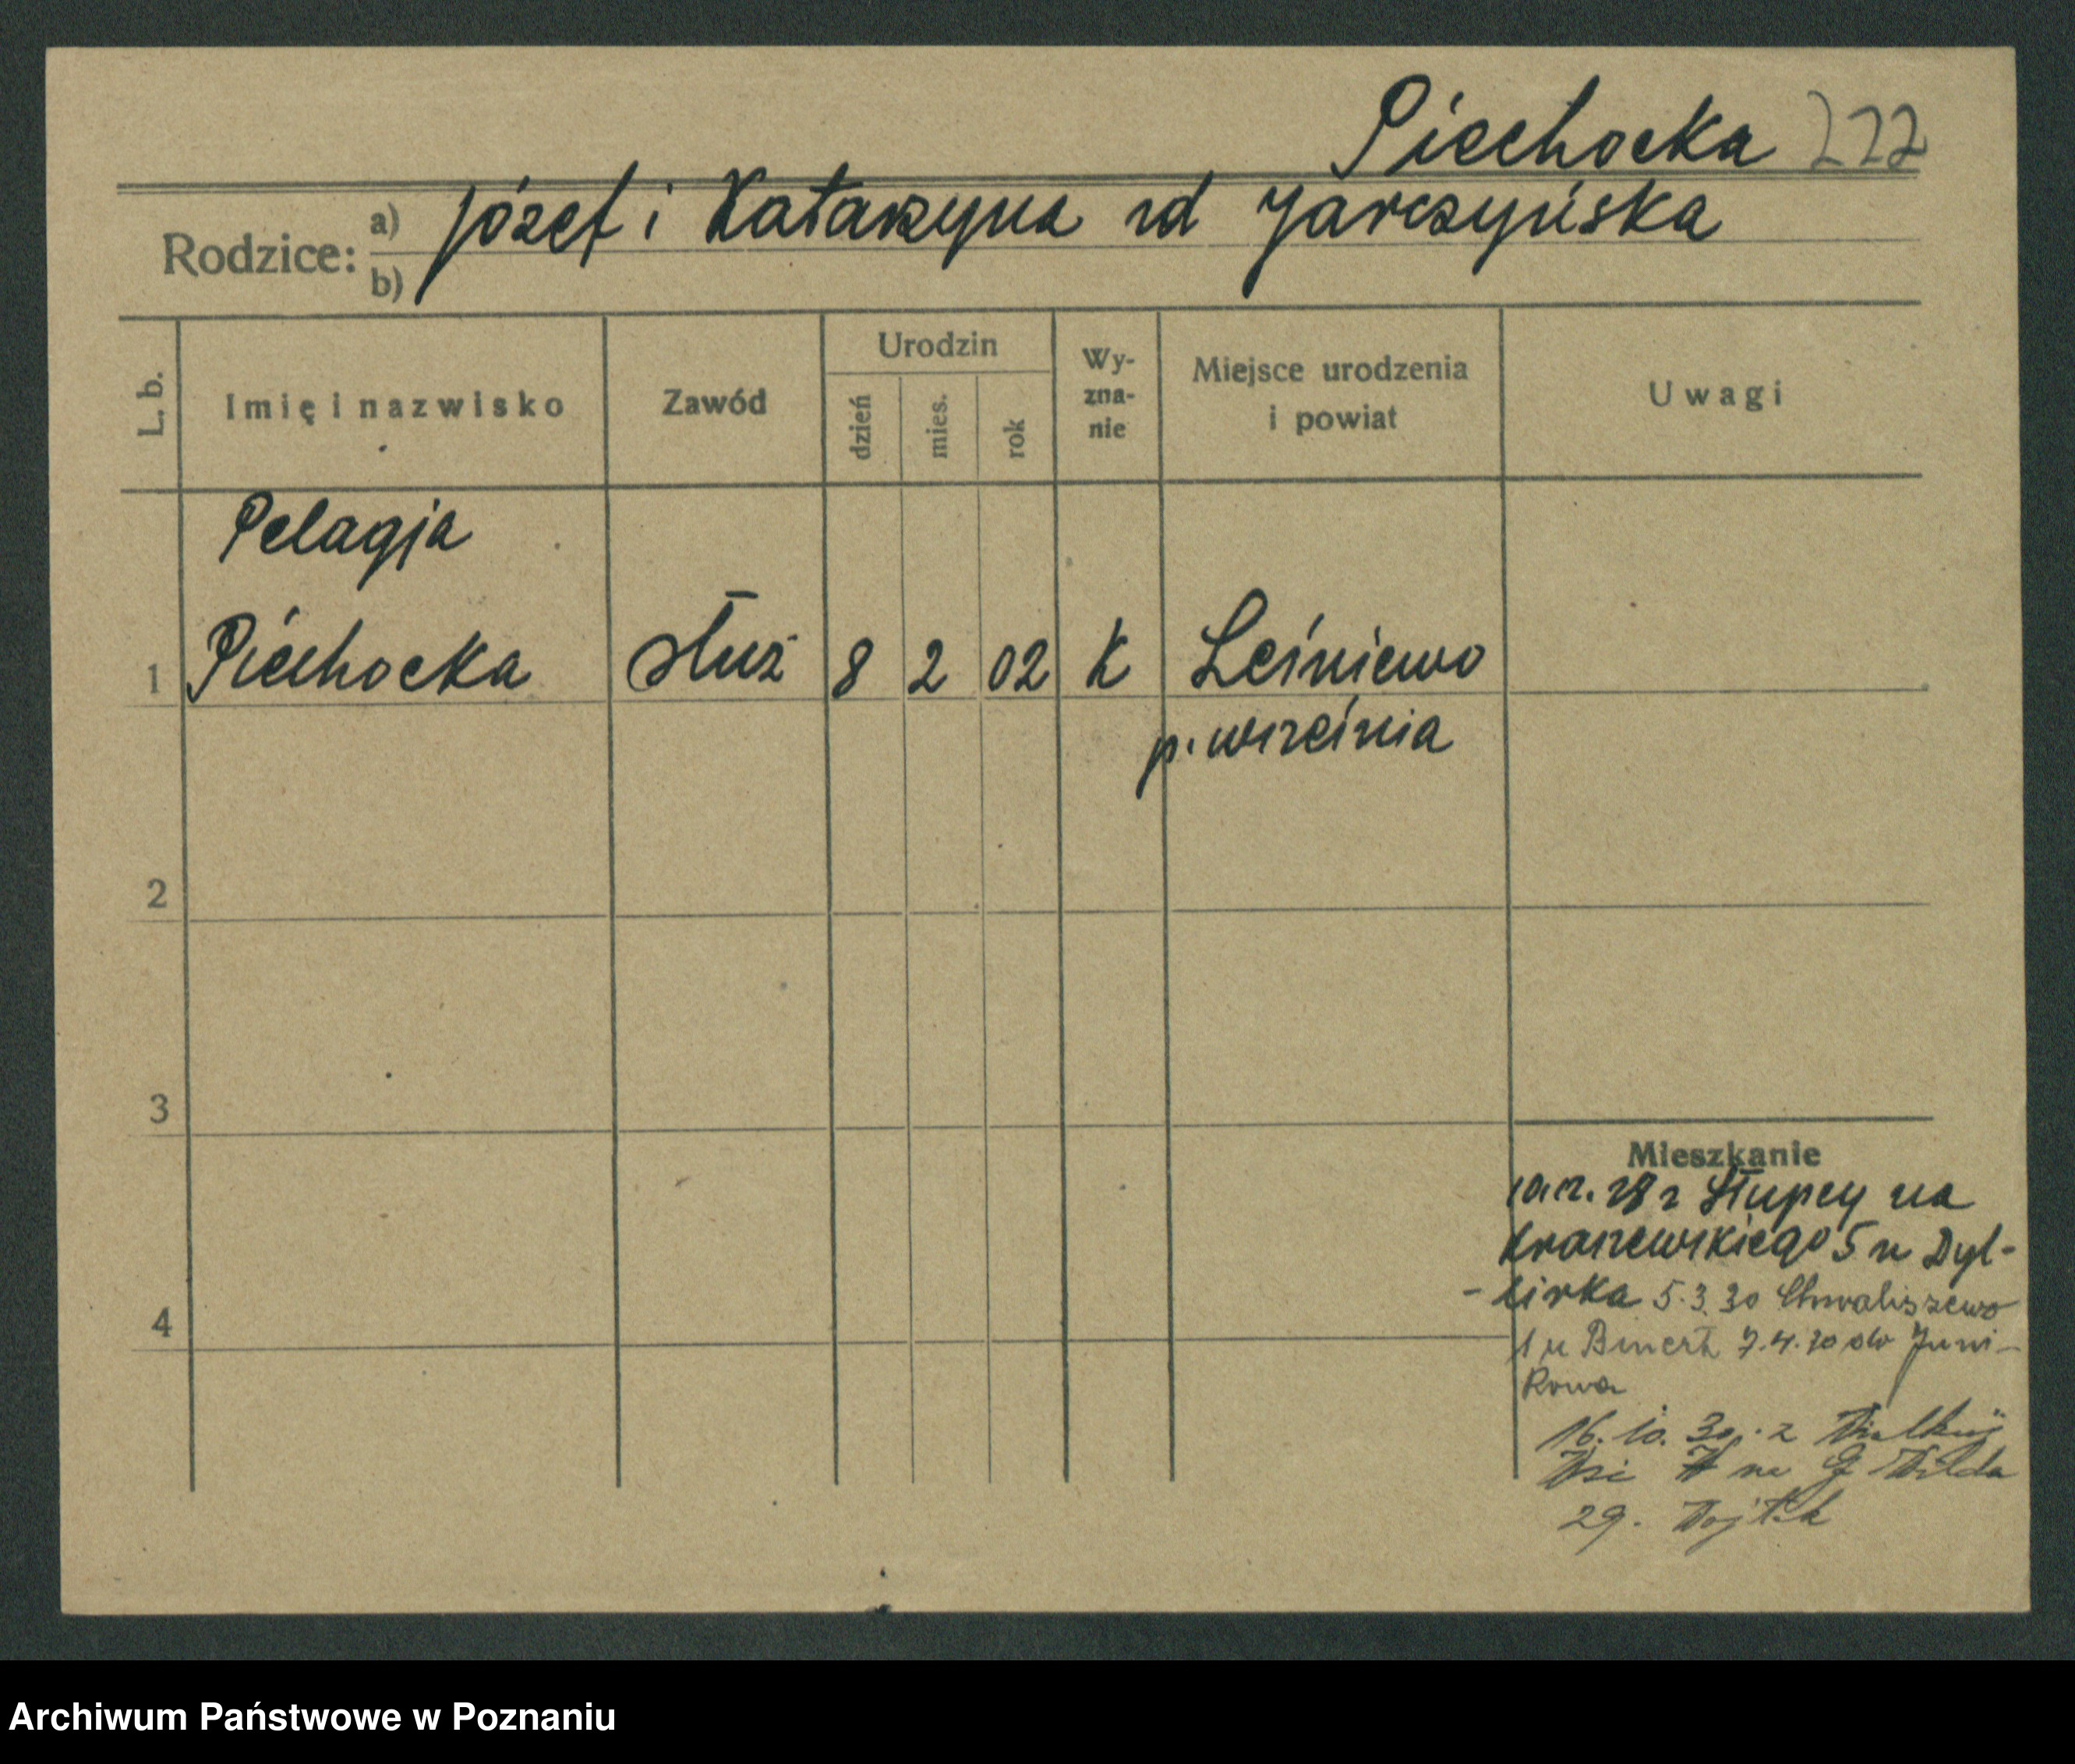 Piechocka 222
Rodzice: a) Józef i Katarzyna zd Jarczyńska
b)
L. b. Imię i nazwisko Zawód Urodzin dzień mies. rok Wy-zna-nie Miejsce urodzenia i powiat Uwagi
Pelagja
1 Piechocka służ 8 2 02 K Leśniewo
p. Września
2
3
Mieszkanie
28 z Słupcy na
Kraszewskiego 5 u Dyl-
5.3.30 Chwaliszewo
4
1 u 7.4.30 do Juni-
kowa
16.10.30. z
Wsi na G Wilda
29.
Archiwum Państwowe w Poznaniu